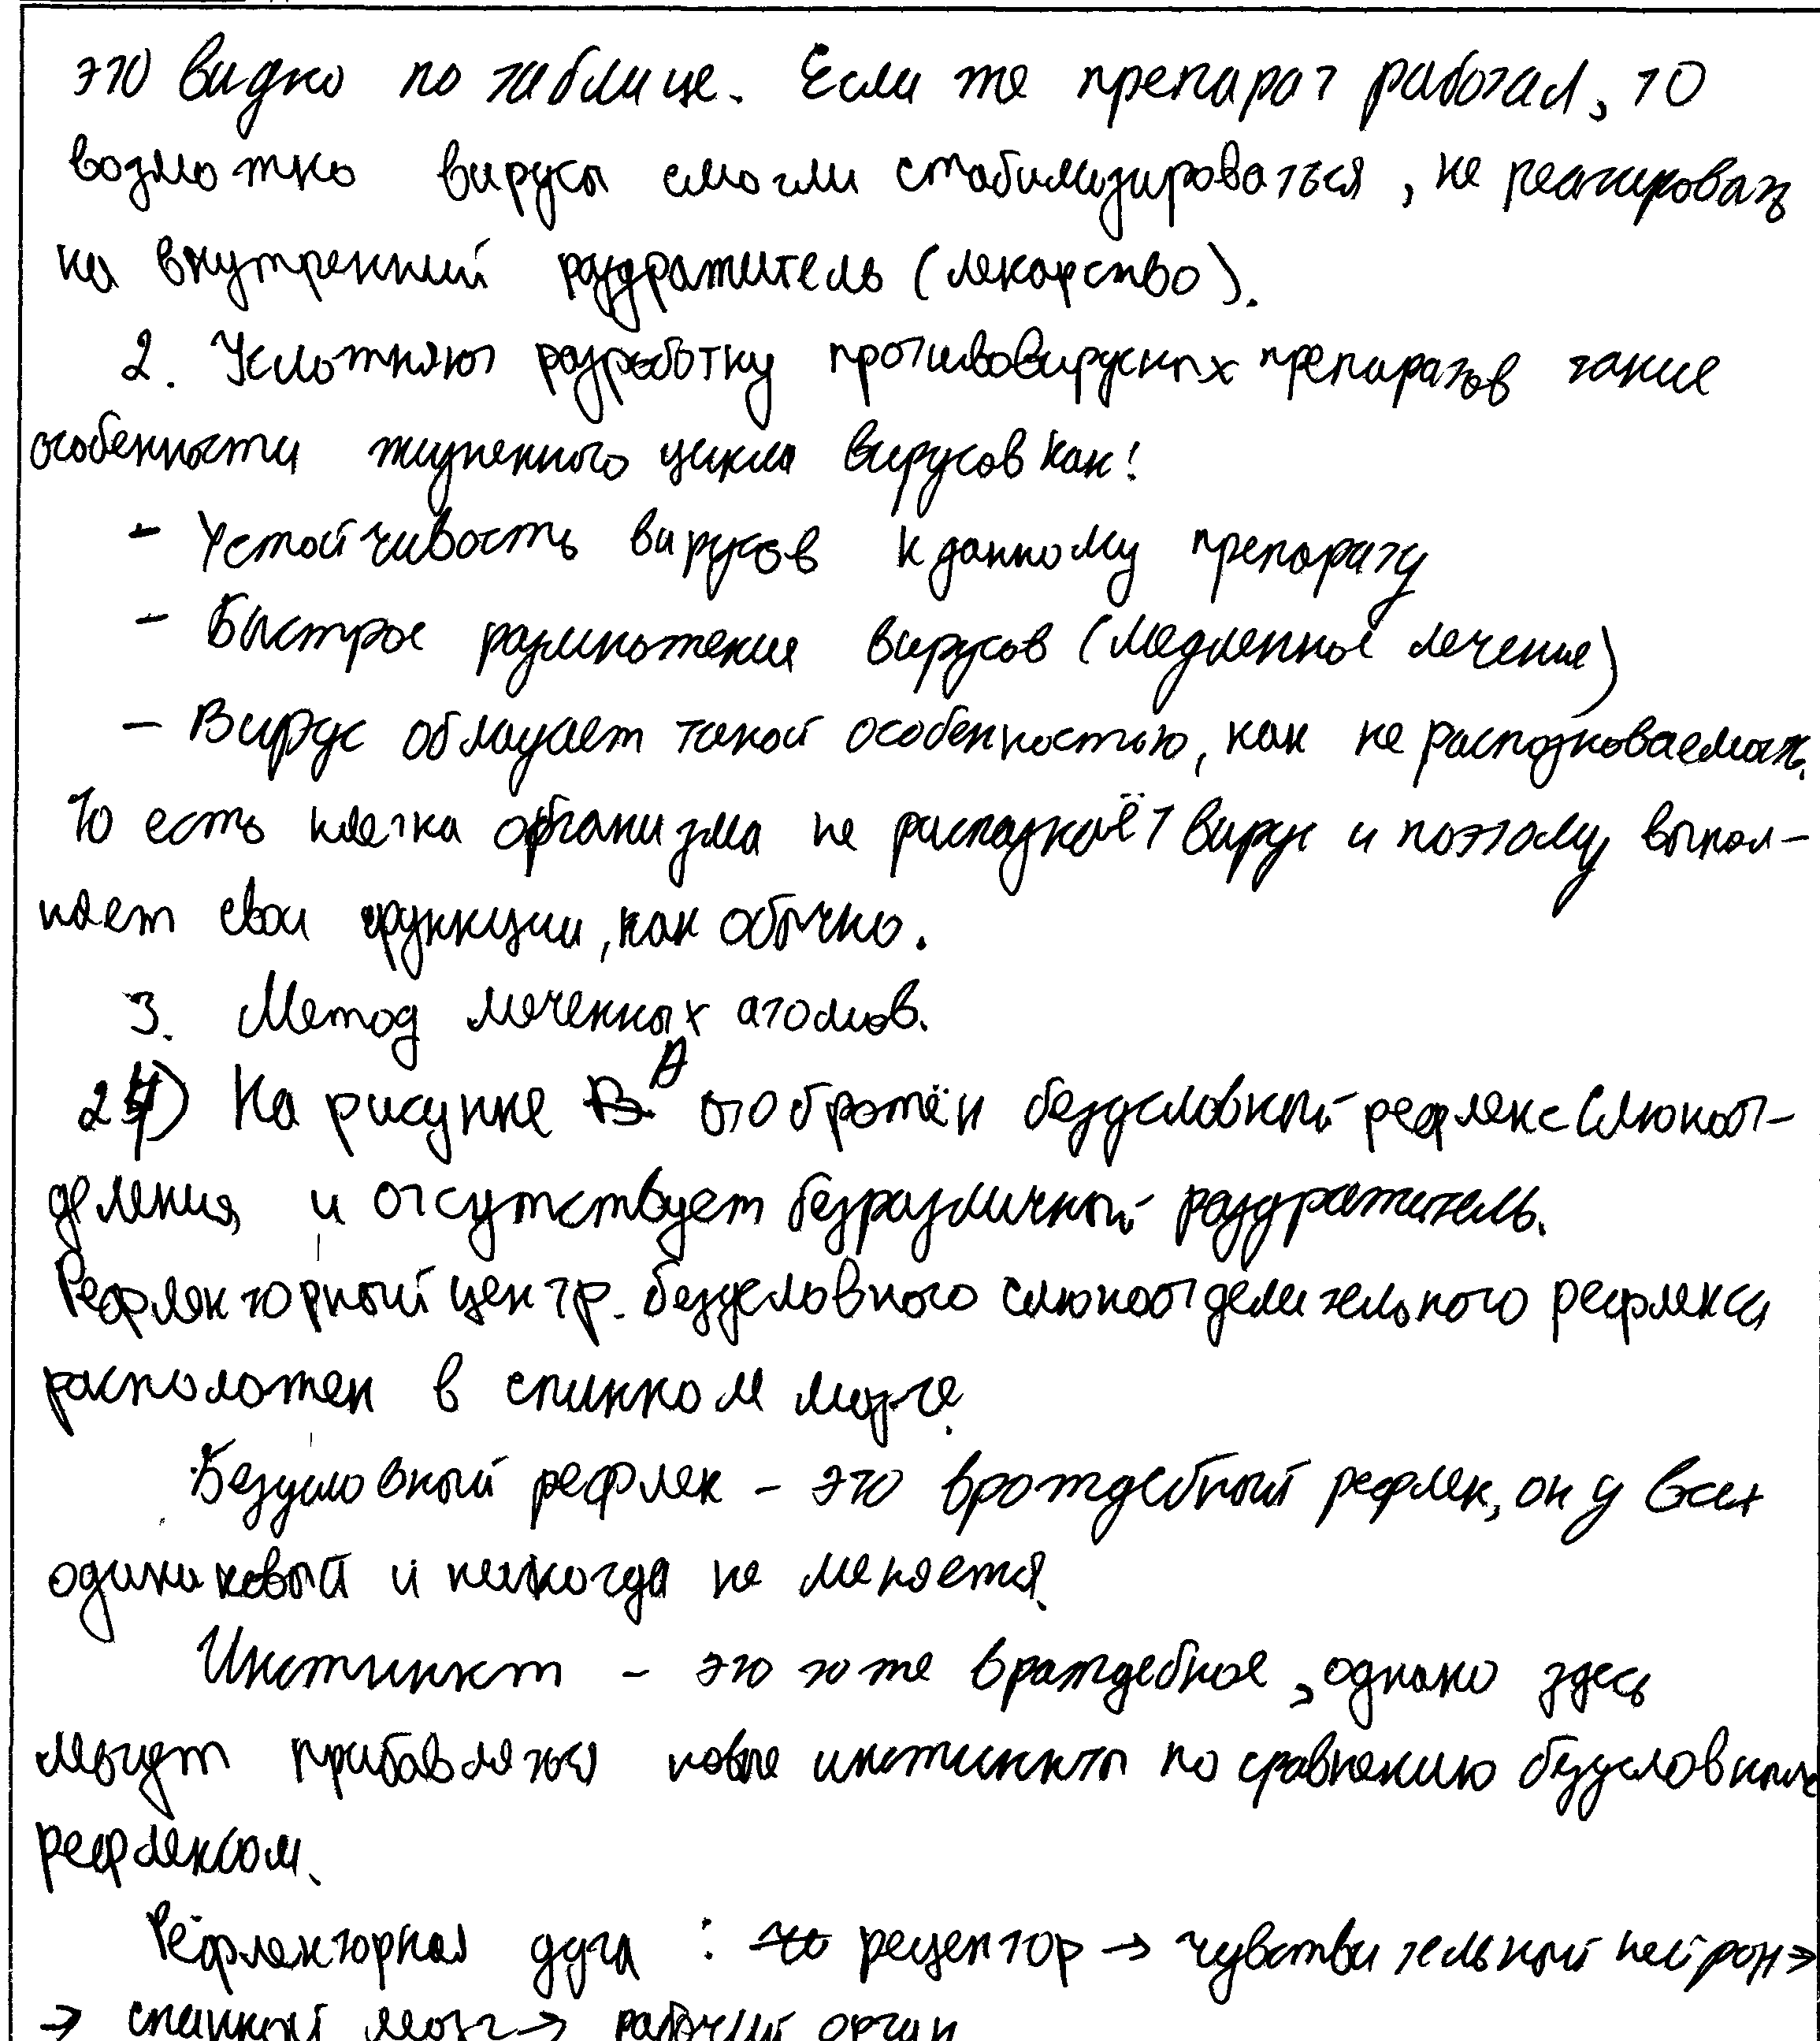 это видно по таблице. Если же препарат работал, то
возможно вирусы смогли стабилизироваться, не реагировать
на внутренний раздражитель (лекарство).
2. Усложняют разработку противовирусных препаратов такие
особенности жизненного цикла вирусов как:
- Устойчивость вирусов к данному препарату
- Быстрое размножения вирусов (медленное лечение)
- Вирус обладает такой особенностью, как не распозноваемость.
То есть клетка организма не распазнаёт вирус и поэтому выпол-
няет свои функции, как обычно.
3. Метод меченных атомов.
24) На рисунке А отображён безусловный рефлекс слюноот-
деления, и отсутствует безразличный раздражитель.
Рефлекторный центр безусловного слюноотделительного рефлекса
расположен в спинном мозге.
Безусловный рефлек - это врождебный рефлек, он у всех
одинаковый и никогда не меняется.
Инстинкт - это тоже враждебное, однако здесь
могут прибавляться новые инстинкты по сравнению безусловным
рефлексом.
Рефлекторная дуга : рецептор → чувствительный нейрон →
→ спинной мозг → рабочий орган